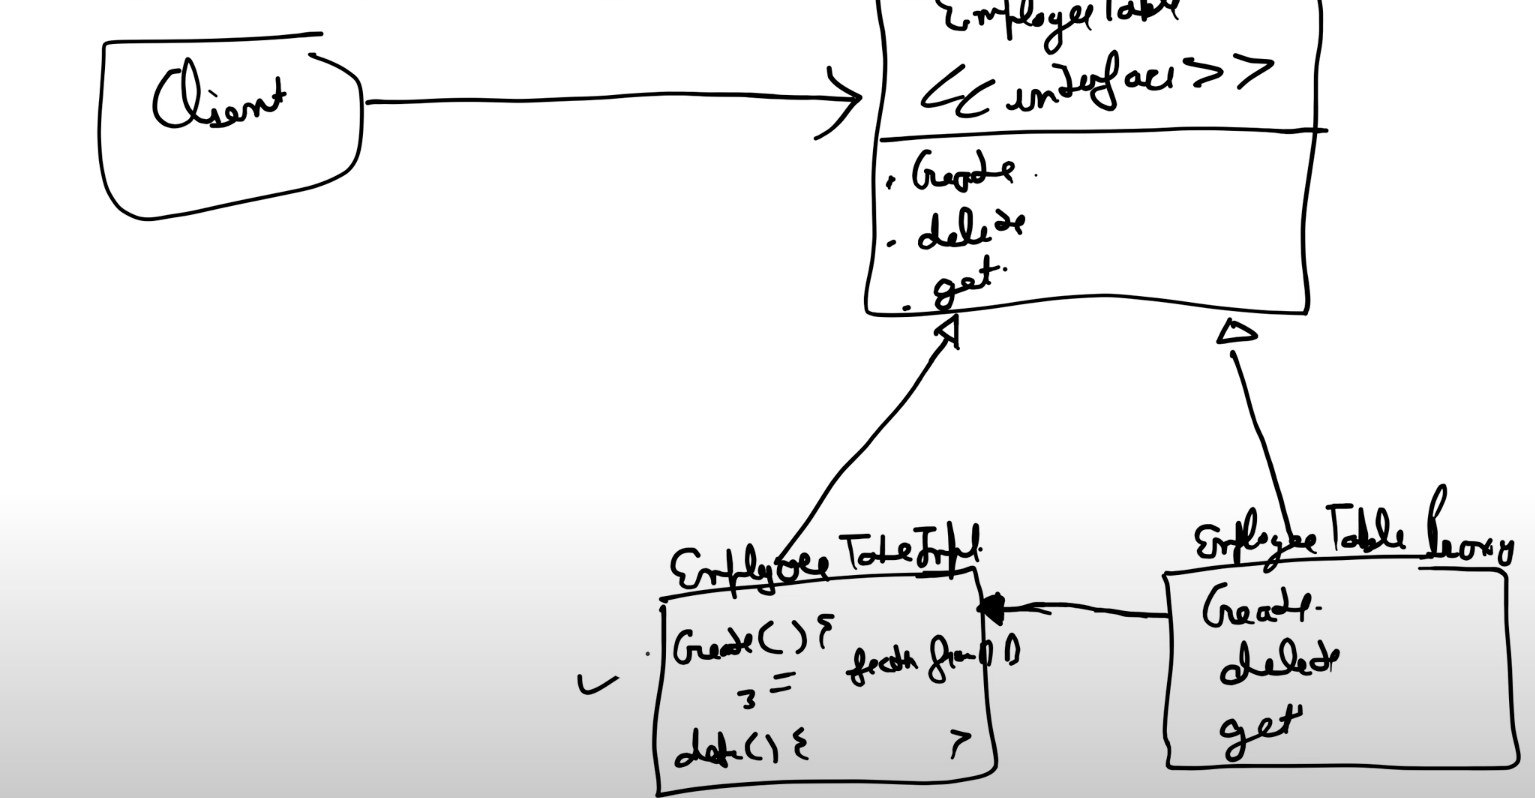 Client
Employee Table
<<interface>>
. Create .
. delete
. get.
Employee Table Impl.
Create() {
}
delete() { }
Employee Table Proxy
Create.
delete
get